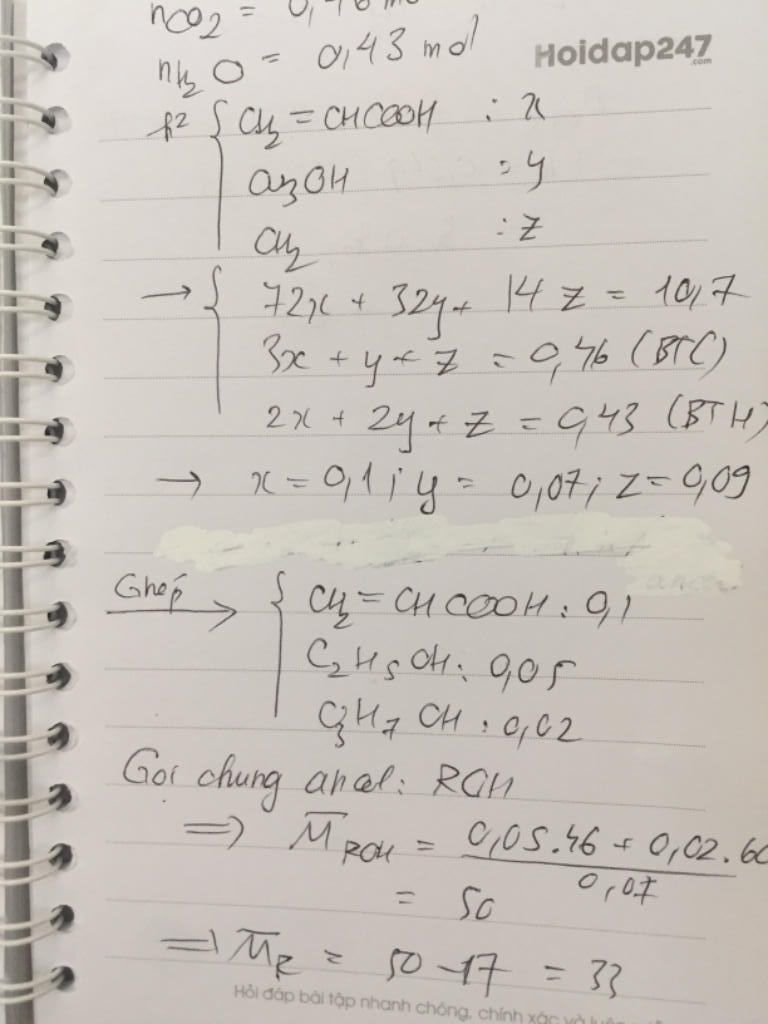 nCO2 = 0,46
nH2O = 0,43 mol
Hoidap247
.com
h² { CH2 = CHCOOH : x
CH3OH : y
CH2 : z
→ { 72x + 32y + 14z = 10,7
3x + y + z = 0,46 (BTC)
2x + 2y + z = 0,43 (BTH)
→ x = 0,1 ; y = 0,07 ; z = 0,09
Ghép → { CH2 = CHCOOH : 0,1
C2H5OH : 0,05
C3H7OH : 0,02
Gọi chung ancol : ROH
⇒ M̅ROH = (0,05.46 + 0,02.60) / 0,07
= 50
⇒ M̅R = 50 - 17 = 33
Hỏi đáp bài tập nhanh chóng, chính xác và